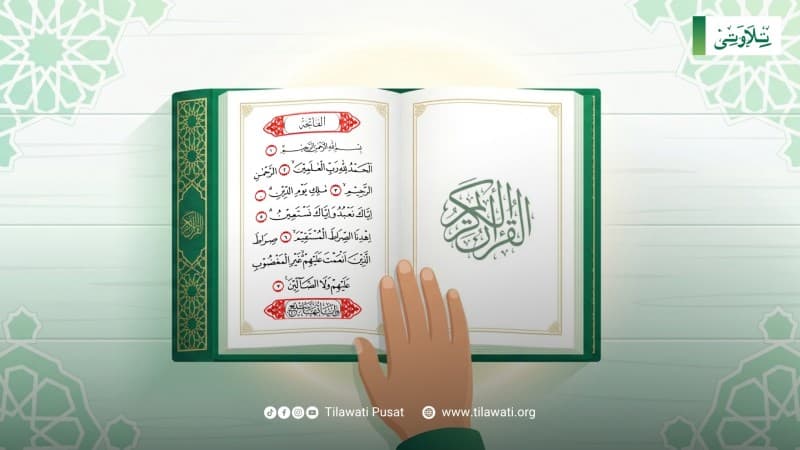 تِلَاوَتِيْ
الفاتحة
بِسْمِ اللهِ الرَّحْمٰنِ الرَّحِيْمِ ١
اَلْحَمْدُ لِلّٰهِ رَبِّ الْعٰلَمِيْنَ ٢ الرَّحْمٰنِ
الرَّحِيْمِ ٣ مٰلِكِ يَوْمِ الدِّيْنِ
اِيَّاكَ نَعْبُدُ وَاِيَّاكَ نَسْتَعِيْنُ ٥
اِهْدِنَا الصِّرَاطَ الْمُسْتَقِيْمَ ٦ صِرَاطَ
الَّذِيْنَ اَنْعَمْتَ عَلَيْهِمْ غَيْرِ الْمَغْضُوْبِ
عَلَيْهِمْ وَلَا الضَّآلِّيْنَ ٧
القرآن الكريم
Tilawati Pusat www.tilawati.org